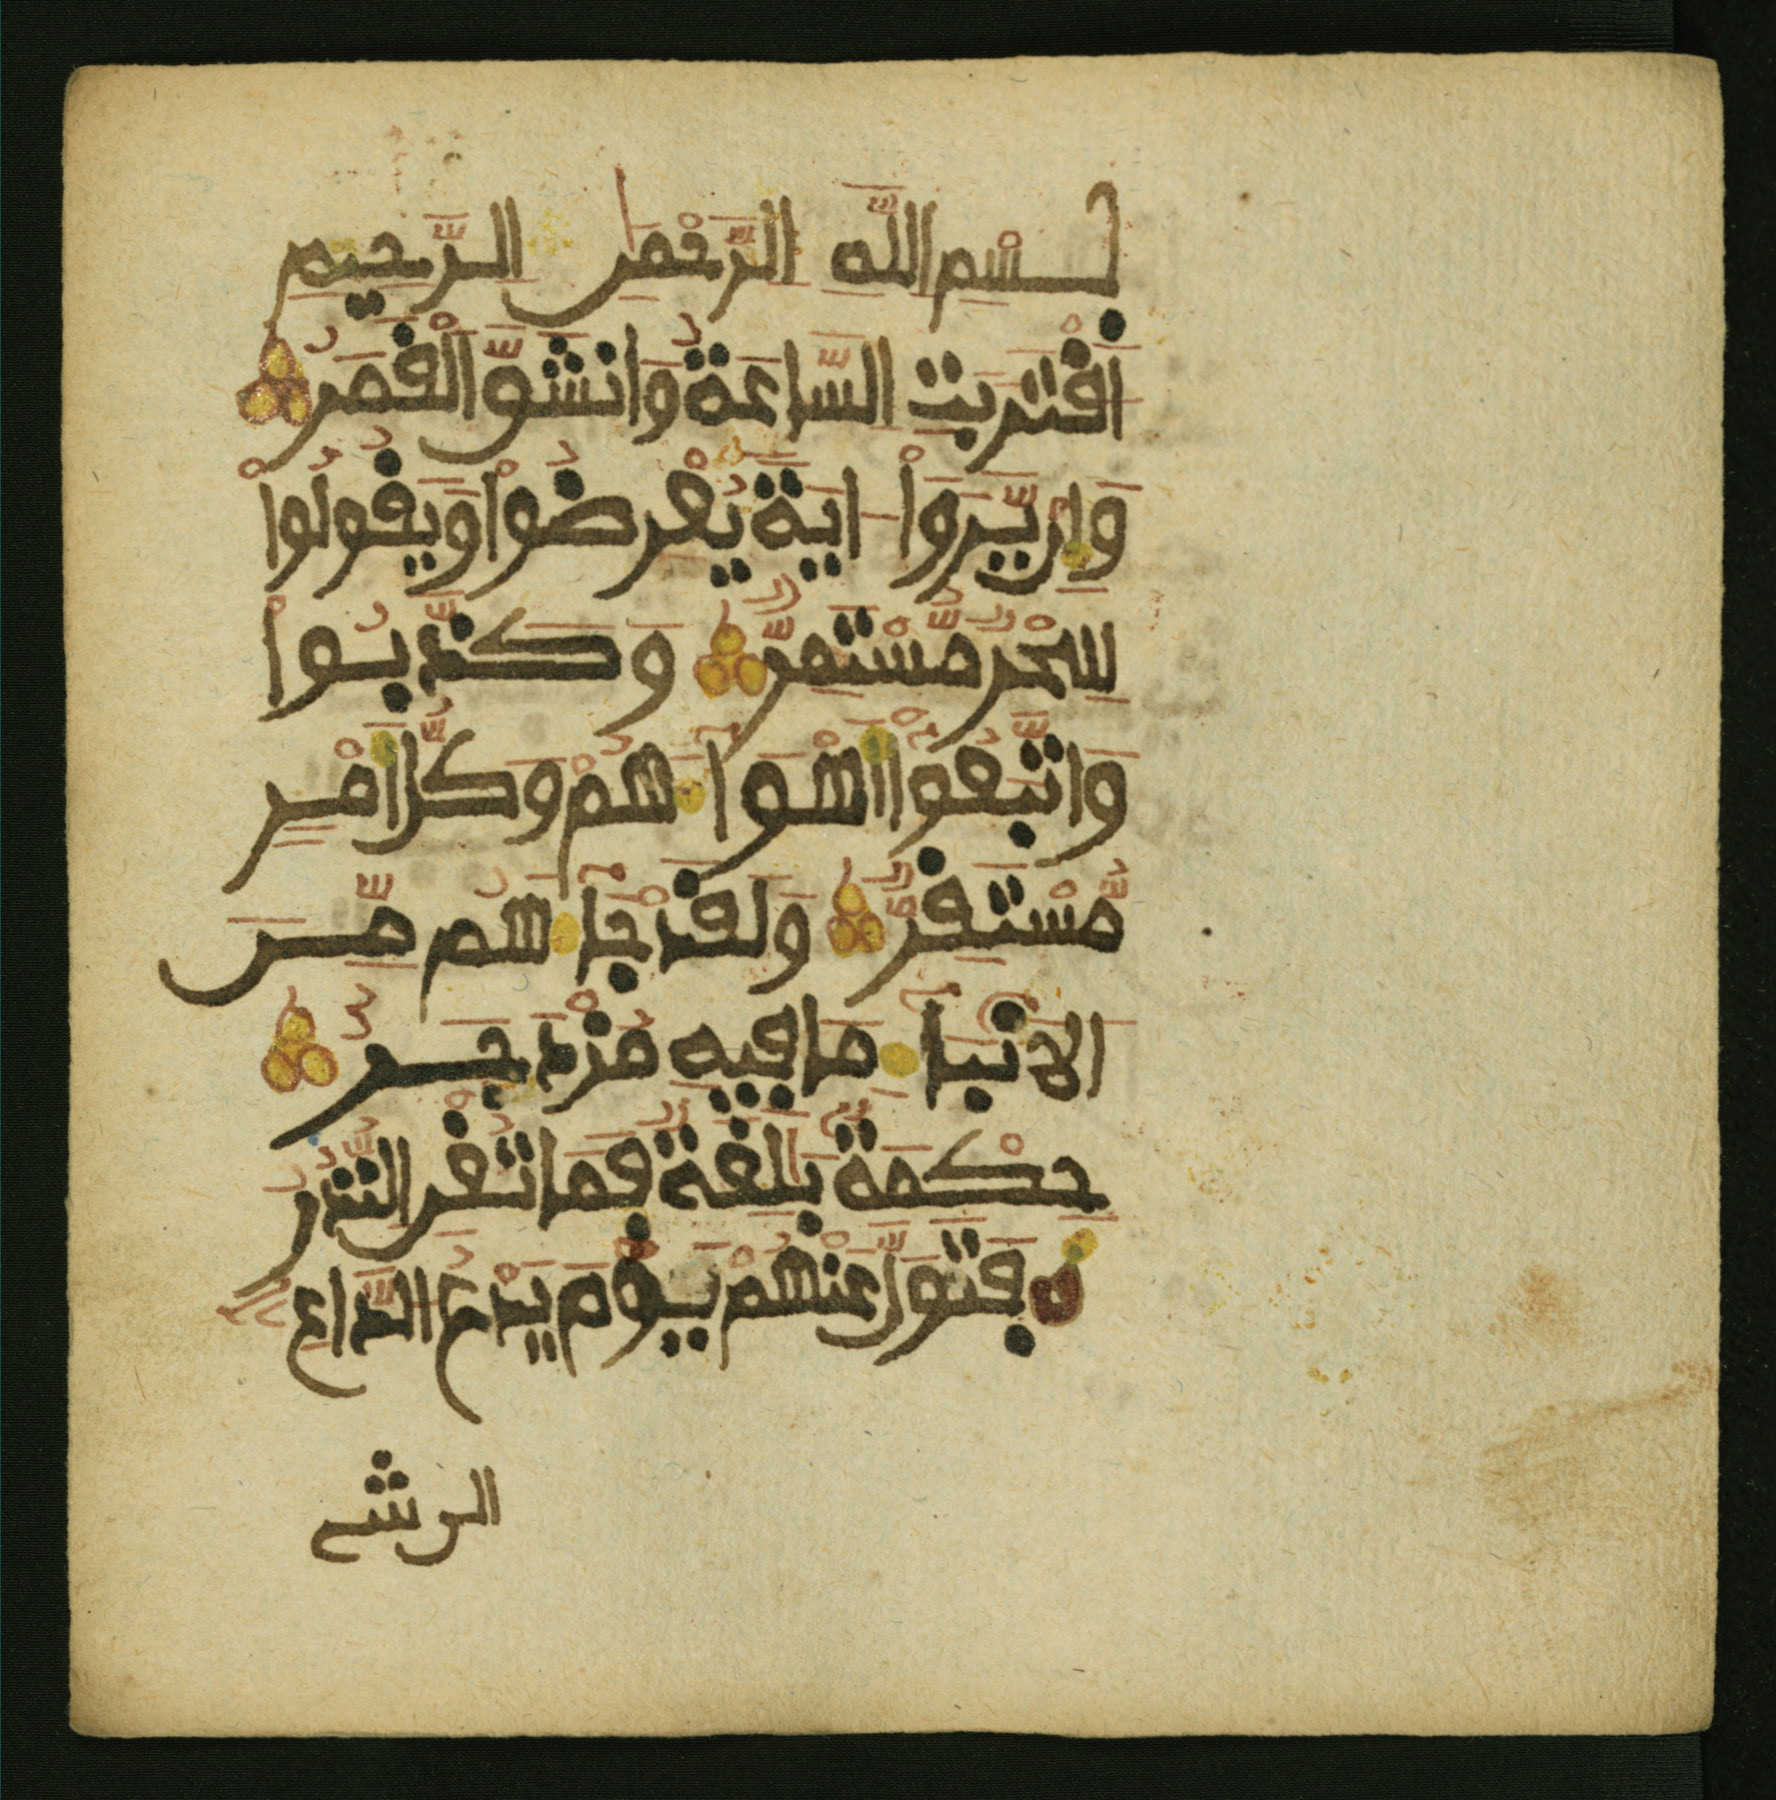 بسم الله الرحمن الرحيم
اقتربت الساعة وانشق القمر
وإن يروا اية يعرضوا ويقولوا
سحر مستمر وكذبوا
واتبعوا أهوا هم وكل أمر
مستقر ولقد جا هم من
الانبا ما فيه مزدجر
حكمة بلغة فما تغن النذر
فتول عنهم يوم يدع الداع
الى شے